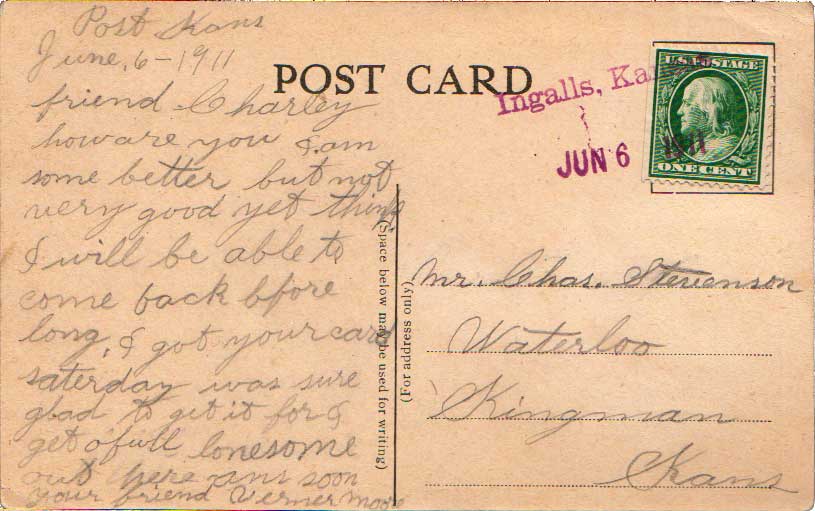 Post Kans
June. 6 - 1911
friend Charley
how are you I. am
some better but not
very good yet think
I will be able to
come back bfore
long, I got your card
saterday was sure
glad to get it for I
get ofull lonesome
out here ans soon
your friend Verner Moore
POST CARD
Ingalls, Kans
JUN 6 1911
U.S. POSTAGE
ONE CENT
(Space below may be used for writing)
(For address only)
Mr. Chas. Stevenson
Waterloo
Kingman
Kans